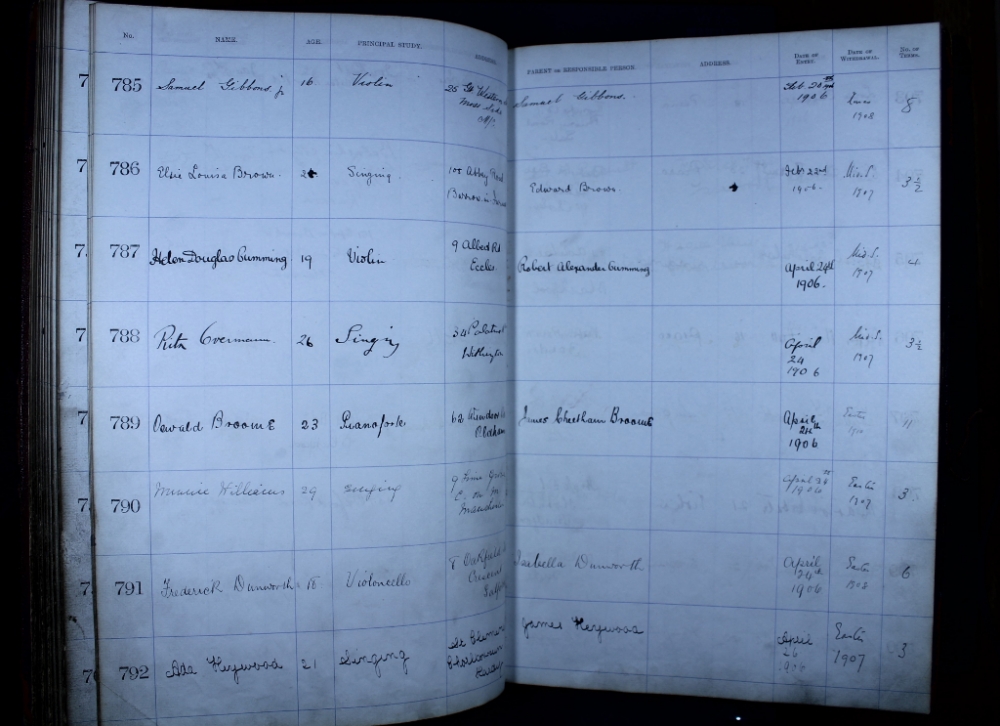 No. NAME. AGE. PRINCIPAL STUDY. PARENT OR RESPONSIBLE PERSON. ADDRESS. DATE OF ENTRY. DATE OF WITHDRAWAL. No. OF TERMS.
785 Samuel Gibbons jr 16 Violin Samuel Gibbons. 1906 1908 8
786 Elsie Louisa Brown. Singing. 105 Abbey Road Edward Brown. Feb 23rd Mids. 3 1/2
Barrow in 1906. 1907
787 Helen Douglas Cumming 19 Violin 9 Albert Rd Robert Alexander Cumming April 24th Mids. 4
Eccles 1906. 1907
788 Rita Overmann. 26 Singing 34 April Mids. 3 1/2
Withington 24 1907
1906
789 Oswald Broome 23 Pianoforte 62 James Cheetham Broome April Easter 11
Oldham 24th
1906
790 Minnie Williams 29 Singing 9 April Easter 3
1906 1907
791 Frederick Dunworth 18 Violoncello 8 Oakfield Isabella Dunworth April Easter 6
Crescent 24th 1908
Salford 1906
792 Ada Heywood 21 Singing James Heywood April Easter 3
26 1907
1906